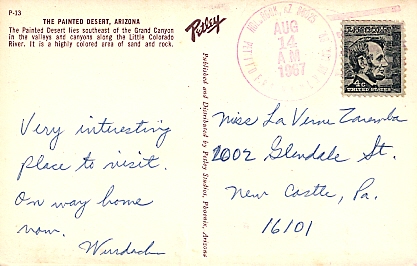 P-13
THE PAINTED DESERT, ARIZONA
The Painted Desert lies southeast of the Grand Canyon
in the valleys and canyons along the Little Colorado
River. It is a highly colored area of sand and rock.
Petley
Published and Distributed by Petley Studios, Phoenix, Arizona
AUG
14
AM
1967
4¢
UNITED STATES
Very interesting
place to visit.
On way home
now.
Miss La Verne Zaremba
2002 Glendale St.
New Castle, Pa.
16101